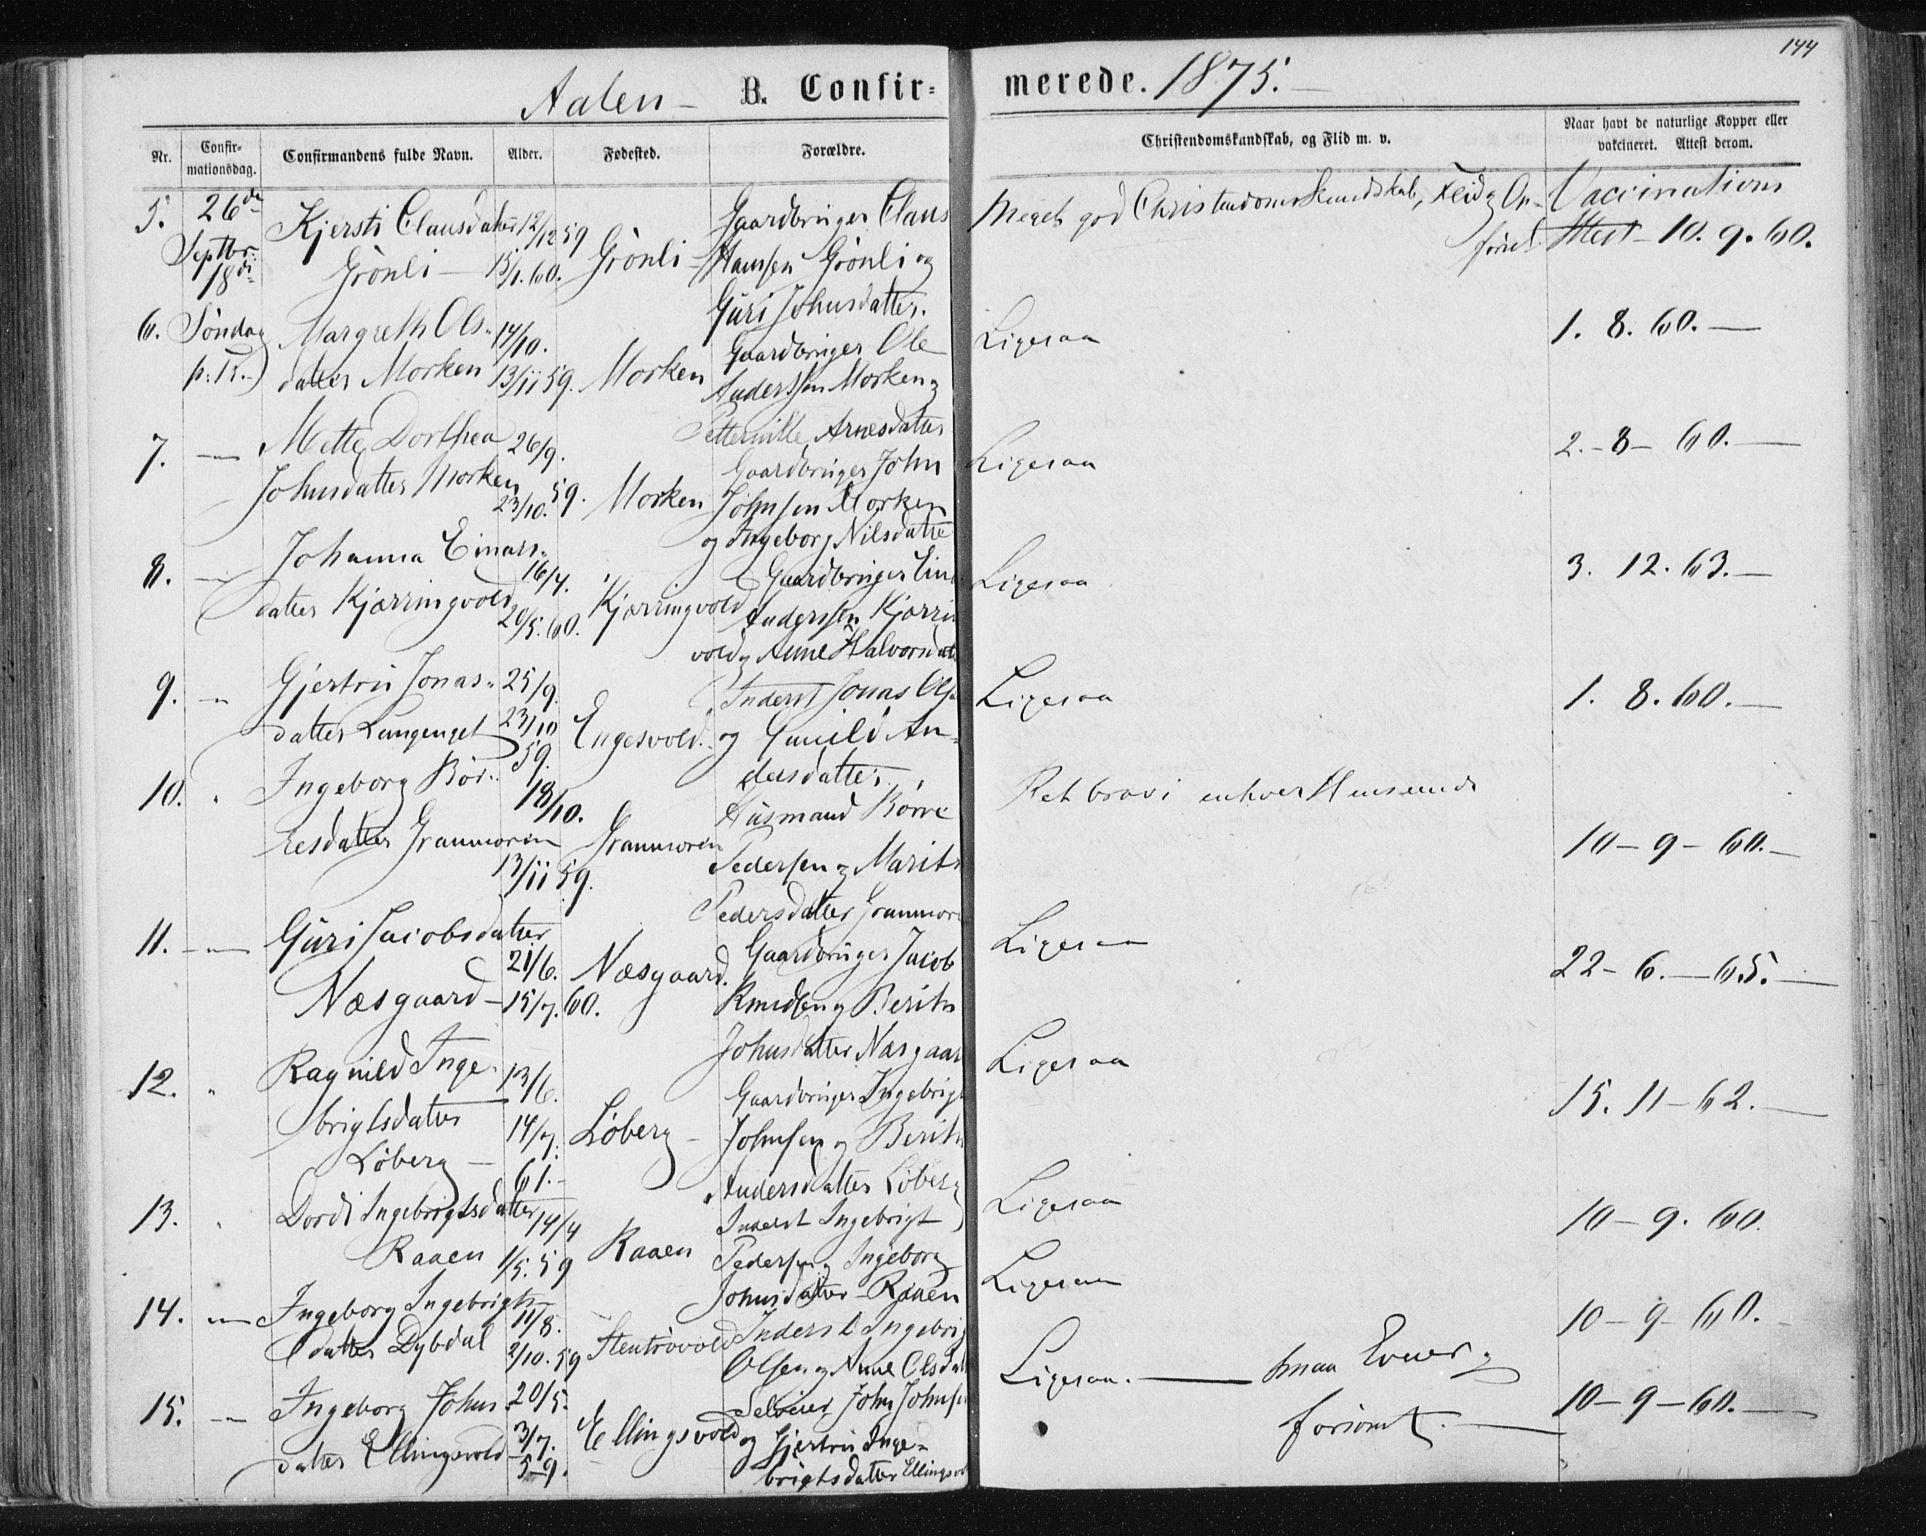 144
Aalen - B. Confirmerede. 1875. -
Nr.
Confirmationsdag.
Confirmandens fulde Navn.
Alder.
Fødested.
Forældre.
Christendomskundskab, og Flid m. v.
Naar havt de naturlige Kopper eller
vakcineret. Attest derom.
5.
26de
Septbr.
18de
Kjersti Clausdatter
Grönli -
12/12 59
15/1. 60.
Grönli -
Gaardbruger Claus
Hansen Grönli og
Guri Johnsdatter.
Meget god Christendomskundskab, Flid og Op-
førsel
Vaccinations
Attest - 10. 9. 60.
6.
Söndag
p: Tr.)
Margreth Ols-
datter Morken
14/10.
13/11 59.
Morken
Gaardbruger Ole
Anderssen Morken og
Petternille Arnesdatter
Ligesaa
1. 8. 60. -
7. -
Mette Dorthea
Johnsdatter Morken
26/9.
23/10. 59.
Morken
Gaardbruger John
Johnsen Morken
og Ingeborg Nilsdatte
Ligesaa
2. - 8 - 60. -
8. -
Johanna Einars-
datter Kjærringvold
16/4.
20/5. 60.
Kjærringvold
Gaardbruger Ein
Anderssen Kjærri
vold og Anne Halvorsdatt
Ligesaa
3. 12. 63. -
9. -
Gjertru Jonas-
datter Lungenget
25/9.
23/10
59.
Engesvold.
Inderst Jonas Ols
og Gunild An-
dersdatter
Ligesaa
1. 8. 60. -
10.
Ingeborg Bör-
resdatter Granmoren
18/10.
13/11 59.
Granmoren
Husmand Börre
Pedersen og Marit
Pedersdatter Granmore
Ret bra i enhver Henseende
10 - 9 - 60. -
11. -
Guri Jacobsdatter
Næsgaard -
21/6.
15/7. 60.
Næsgaard.
Gaardbruger Jacob
Knudsen og Berith
Johnsdatter Næsgaar
Ligesaa
22 - 6. - 65. -
12.
Ragnild Inge-
brigtsdatter
Löberg -
13/6.
14/7.
61. -
Löberg -
Gaardbruger Ingebrigt
Johnsen og Berith
Andersdatter Löberg
Ligesaa
15. 11 - 62. -
13.
Dordi Ingebrigtsdatter
Raaen
14/4
1/5. 59
Raaen
Inderst Ingebrigt
Pedersen og Ingeborg
Johnsdatter Raaen
Ligesaa
10 - 9. 60.
14. -
Ingeborg Ingebrigts-
datter Dybdal
11/8.
2/10. 59
Stentrövold
Inderst Ingebrig
Olsen og Anne Olsdatt
Ligesaa
10 - 9 - 60.
15. -
Ingeborg Johns-
datter Ellingsvold
20/5.
3/7.
59.
Ellingsvold
Selveier John Johnse
og Gjertru Inge-
brigtsdatter Ellingsvol
Ligesaa. - smaa Evner og
forsømt. -
10 - 9 - 60. -